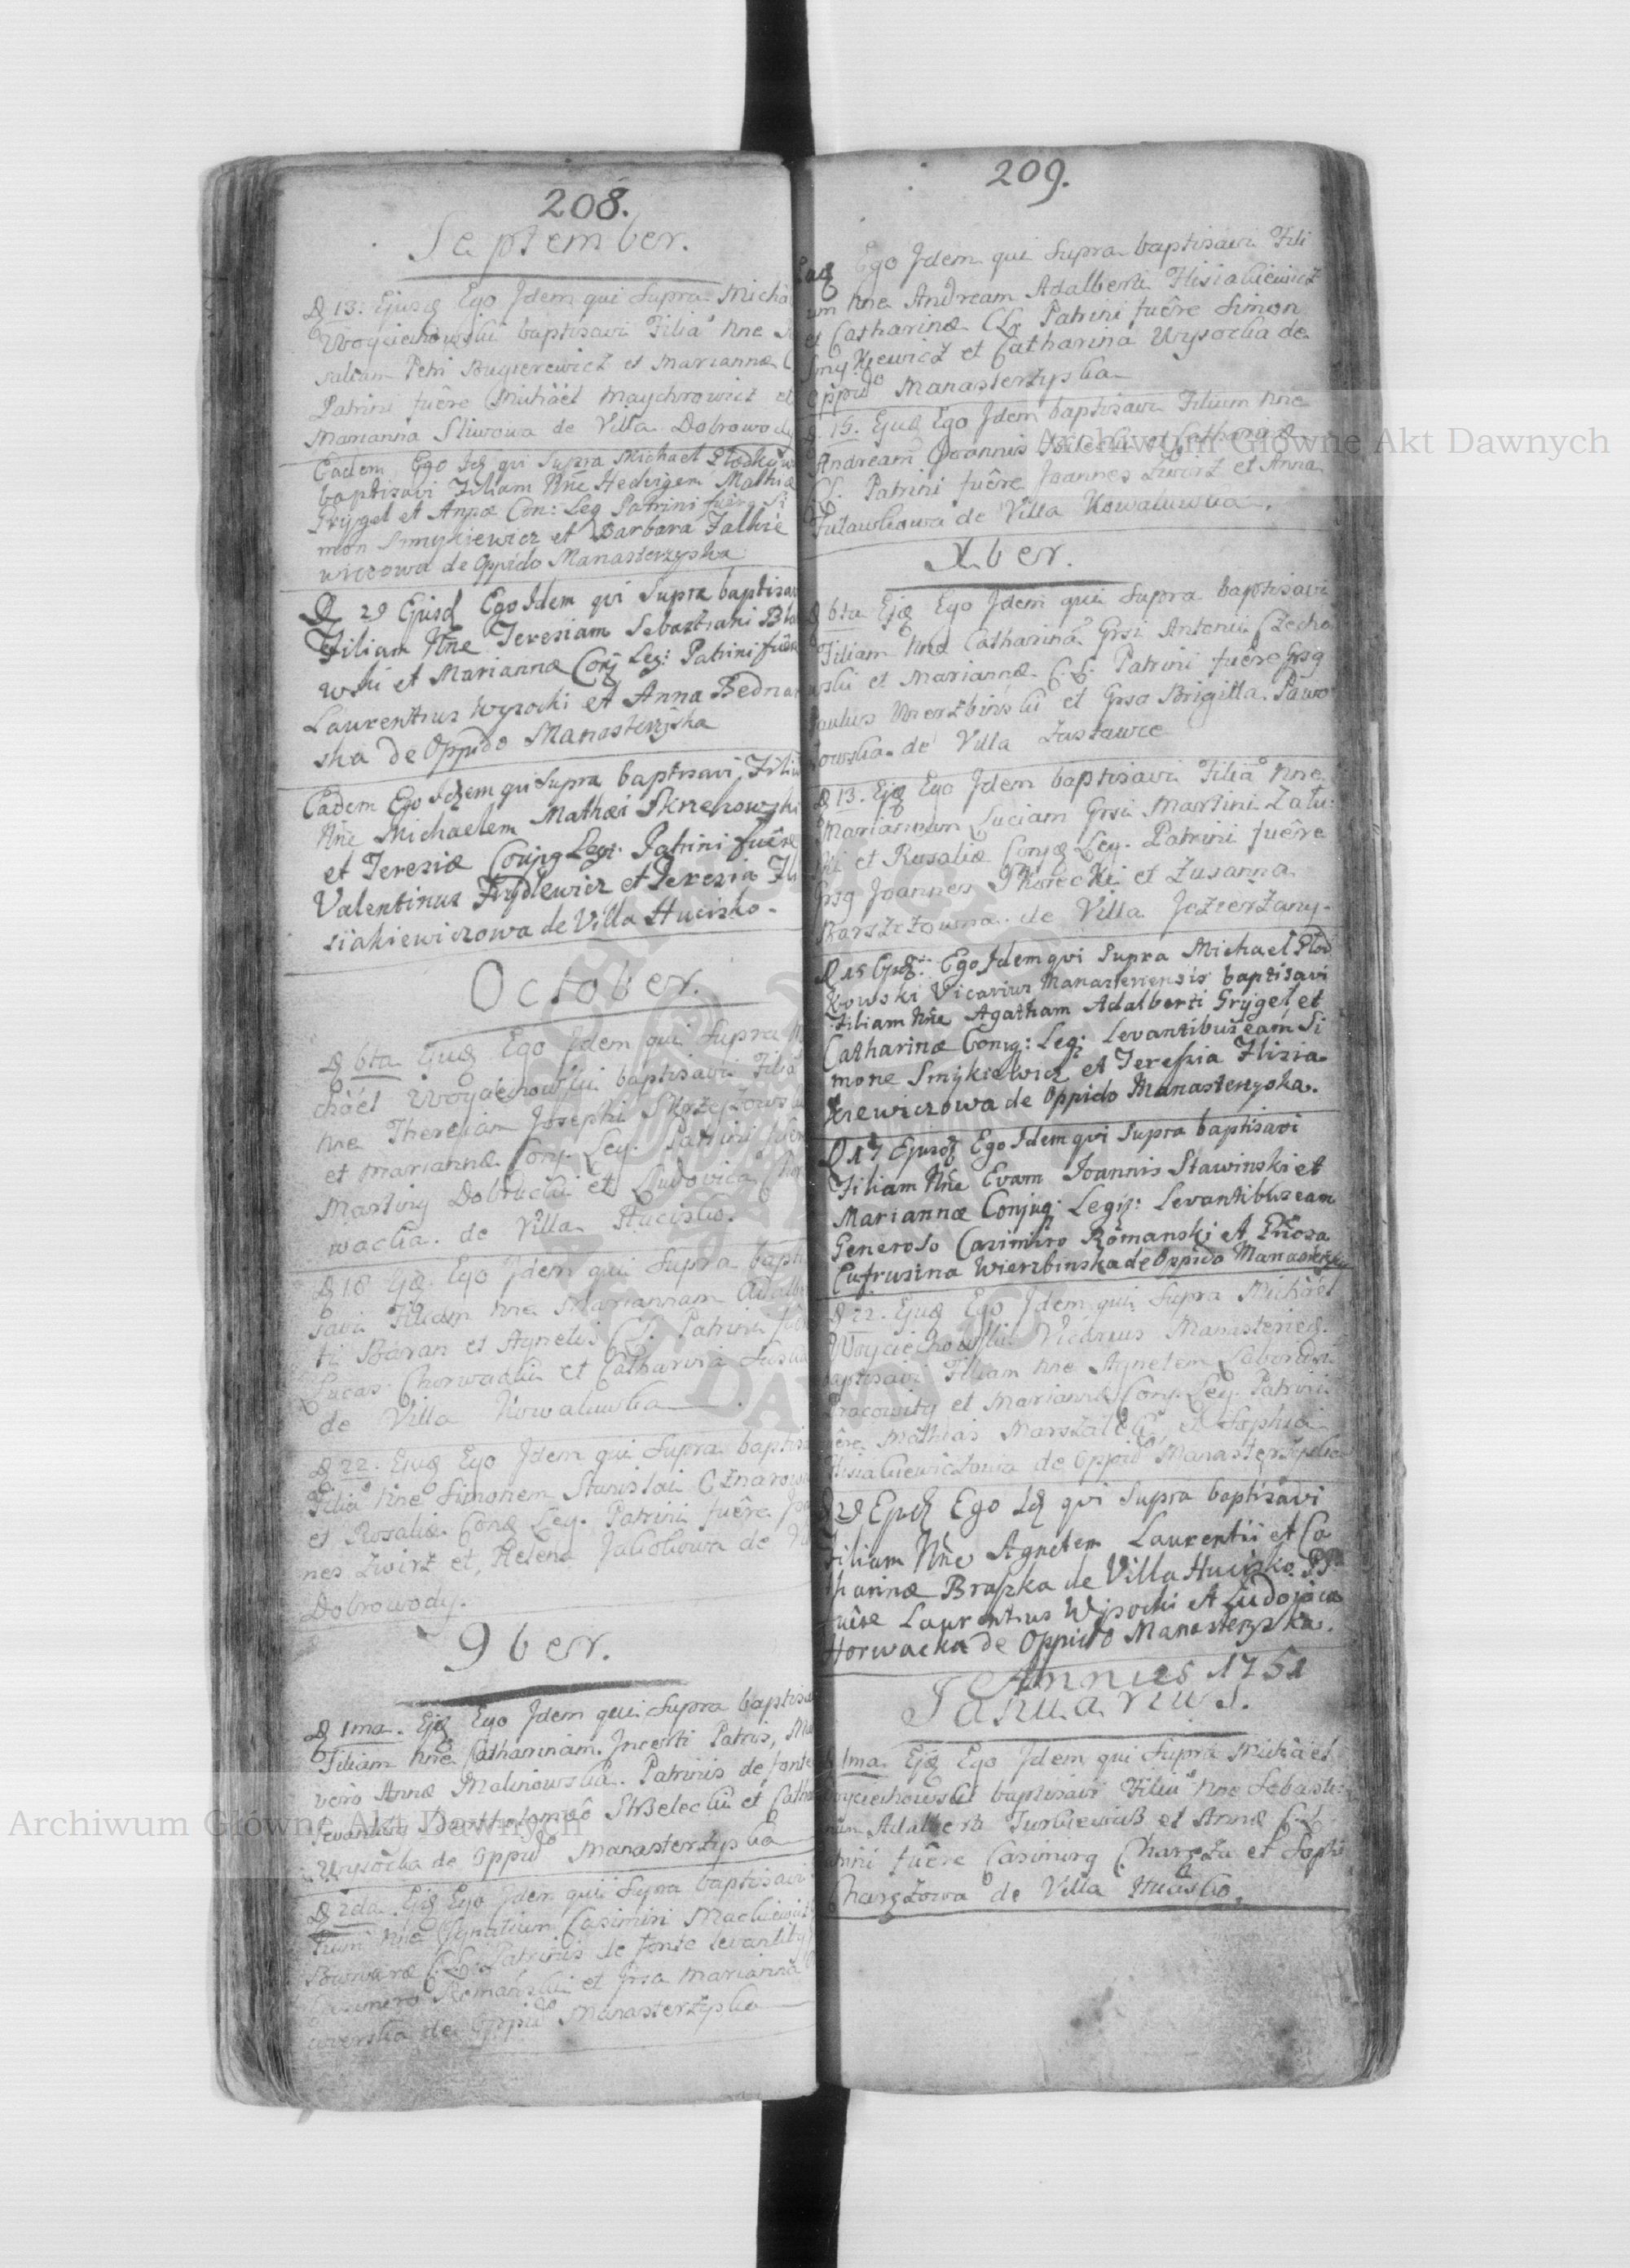 208.
September.
D 13. Ejusq Ego Jdem qui Supra Micha
Woyciechowski baptisavi Filiã Nne
saliam Petri Bugierewicz et Mariannæ
Patrini fuêre Michäel Maychrowicz et
Marianna Sliwowa de Villa Dobrowody
Eadem Ego Idq qvi Supra Michael Plodkow
baptisavi Filiam Nñe Hedvigem Mathiæ
Grÿgel et Annæ Con: Leg Patrini fuêre Si
mon Smykiewicz et Barbara Falkie
wiczowa de Oppido Manasterzyska
D 29 Ejusq Ego Idem qvi Supra baptisav
Filiam Nñe Teresiam Sebastiani Bla
wski et Mariannæ Conj Leg: Patrini fuêre
Laurentius Wysocki et Anna Bednar
ska de Oppido Manasterzyska
Eadem Ego Idem qui Supra baptisavi Filiu
Nñe Michaelem Mathæi Skrzekowski
et Teresiæ Conjug Leg: Patrini fuêre
Valentinus Frydlewicz et Teresia Fli
siakiewiczowa de Villa Hucisko.
October.
D 6ta Ejusq Ego Jdem qui Supra Mi
chäel Woyciechowski baptisavi Filiã
Nne Theresiam Josephi Skrzeszowski
et Mariannæ Conj. Leg. Patrini fuêre
Martinq Dobrucki et Ludovica Chor
wacka. de Villa Hucisko.
D 18 Ejq. Ego Jdem qui Supra bapti
savi Filiam Nne Mariannam Adalber
ti Baran et Agnetis C.L. Patrini fuêr
Lucas Chorwacki et Catharina
de Villa Kowaluwka.
D 22. Ejusq Ego Jdem qui Supra baptis
Filiũ Nne Simonem Stanislai
et Rosaliæ Conq Leg. Patrini fuêre Joa
nes Zwirz et Helena Jakobowa de
Dobrowody.
9ber.
D 1ma. Ejq Ego Jdem qui Supra baptisa
Filiam Nne Catharinam. Jncerti Patris, Ma
vero Annæ Malinowska. Patrinis de fonte
levantibq Bartholomæo Strzelecki et Catha
Wysocka de Oppido Manasterzyska
D 2da. Ejq Ego Jdem qui Supra baptisavi
lium Nne Jgnatium Casimiri Mackiewicz
Barbaræ C.L. Patrinis de fonte levantibq
Casimero Romanski et Grsa Marianna
de Oppido Manasterzyska
209.
Eadq Ego Jdem qui Supra baptisavi Fili
um Nne Andream Adalberti Flisiakiewicz
et Catharinæ CLg Patrini fuêre Simon
Smykiewicz et Catharina Wysocka de
Oppido Manasterzyska
D 15. Ejusq Ego Jdem baptisavi Filium Nne
Andream Joannis et Catharinæ
C.L. Patrini fuêre Joannes Zwirz et Anna
de Villa Kowaluwka.
Xber.
D 6ta Ejq Ego Jdem qui Supra baptisavi
Filiam Nne Catharinã Grsi Antonii Czecho
wski et Mariannæ C.L. Patrini fuêre Grsq
Paulus Wierzbinski et Grsa Brigitta Pawo
lowska. de Villa Zastawce
D 13. Ejq Ego Jdem baptisavi Filiã Nne
Mariannam Luciam Grsi Martini Zalu:
ski et Rosaliæ Conjq Leg. Patrini fuêre
Grsq Joannes Skorecki et Zusanna
de Villa Jezierzany.
D 15 Ejusq: Ego Idem qvi Supra Michael Plod
kowski Vicarius Manasteriensis baptisavi
Filiam Nñe Agatham Adalberti Grÿgel et
Catharinæ Conjug: Leg: Levantibus eam Si
mone Smÿkiewicz et Teressia Flisia
kiewiczowa de Oppido Manasterzyska.
D 17 Ejusq Ego Idem qvi Supra baptisavi
Filiam Nñe Evam Joannis Stawinski et
Mariannæ Conjug: Legi: Levantibus eam
Generoso Casimiro Romanski et Gñosa
Eufrusina Wierzbinska de Oppido Manasterzyska
D 22. Ejusq Ego Jdem qui Supra Michäel
Woyciechowski Vicarius Manasteriens.
baptisavi Filiam Nne Agnetem Laboriosi
Pracowity et Mariannæ Conj. Leg. Patrini
fuêre Mathias Marszalek et Sophia
Flisiakiewiczowa de Oppido Manasterzyska
D 29 Ejusq Ego Idq qvi Supra baptisavi
Filiam Nñe Agnetem Laurentii et Ca
tharinæ Braszka de Villa Hucisko PP
fuêre Laurentius Wysocki et Ludovica
Horwacka de Oppido Manasterzyska.
Annus 1751
Januarius.
D 1ma. Ejq Ego Jdem qui Supra Michäel
Woyciechowski baptisavi Filiũ Nne Sebasti:
num Adalberti Jurkiewicz et Annæ C.L.
Patrini fuêre Casimirq Charęza et Sophi
Charęzowa de Villa Hucisko.
Archiwum Główne Akt Dawnych
Archiwum Główne Akt Dawnych